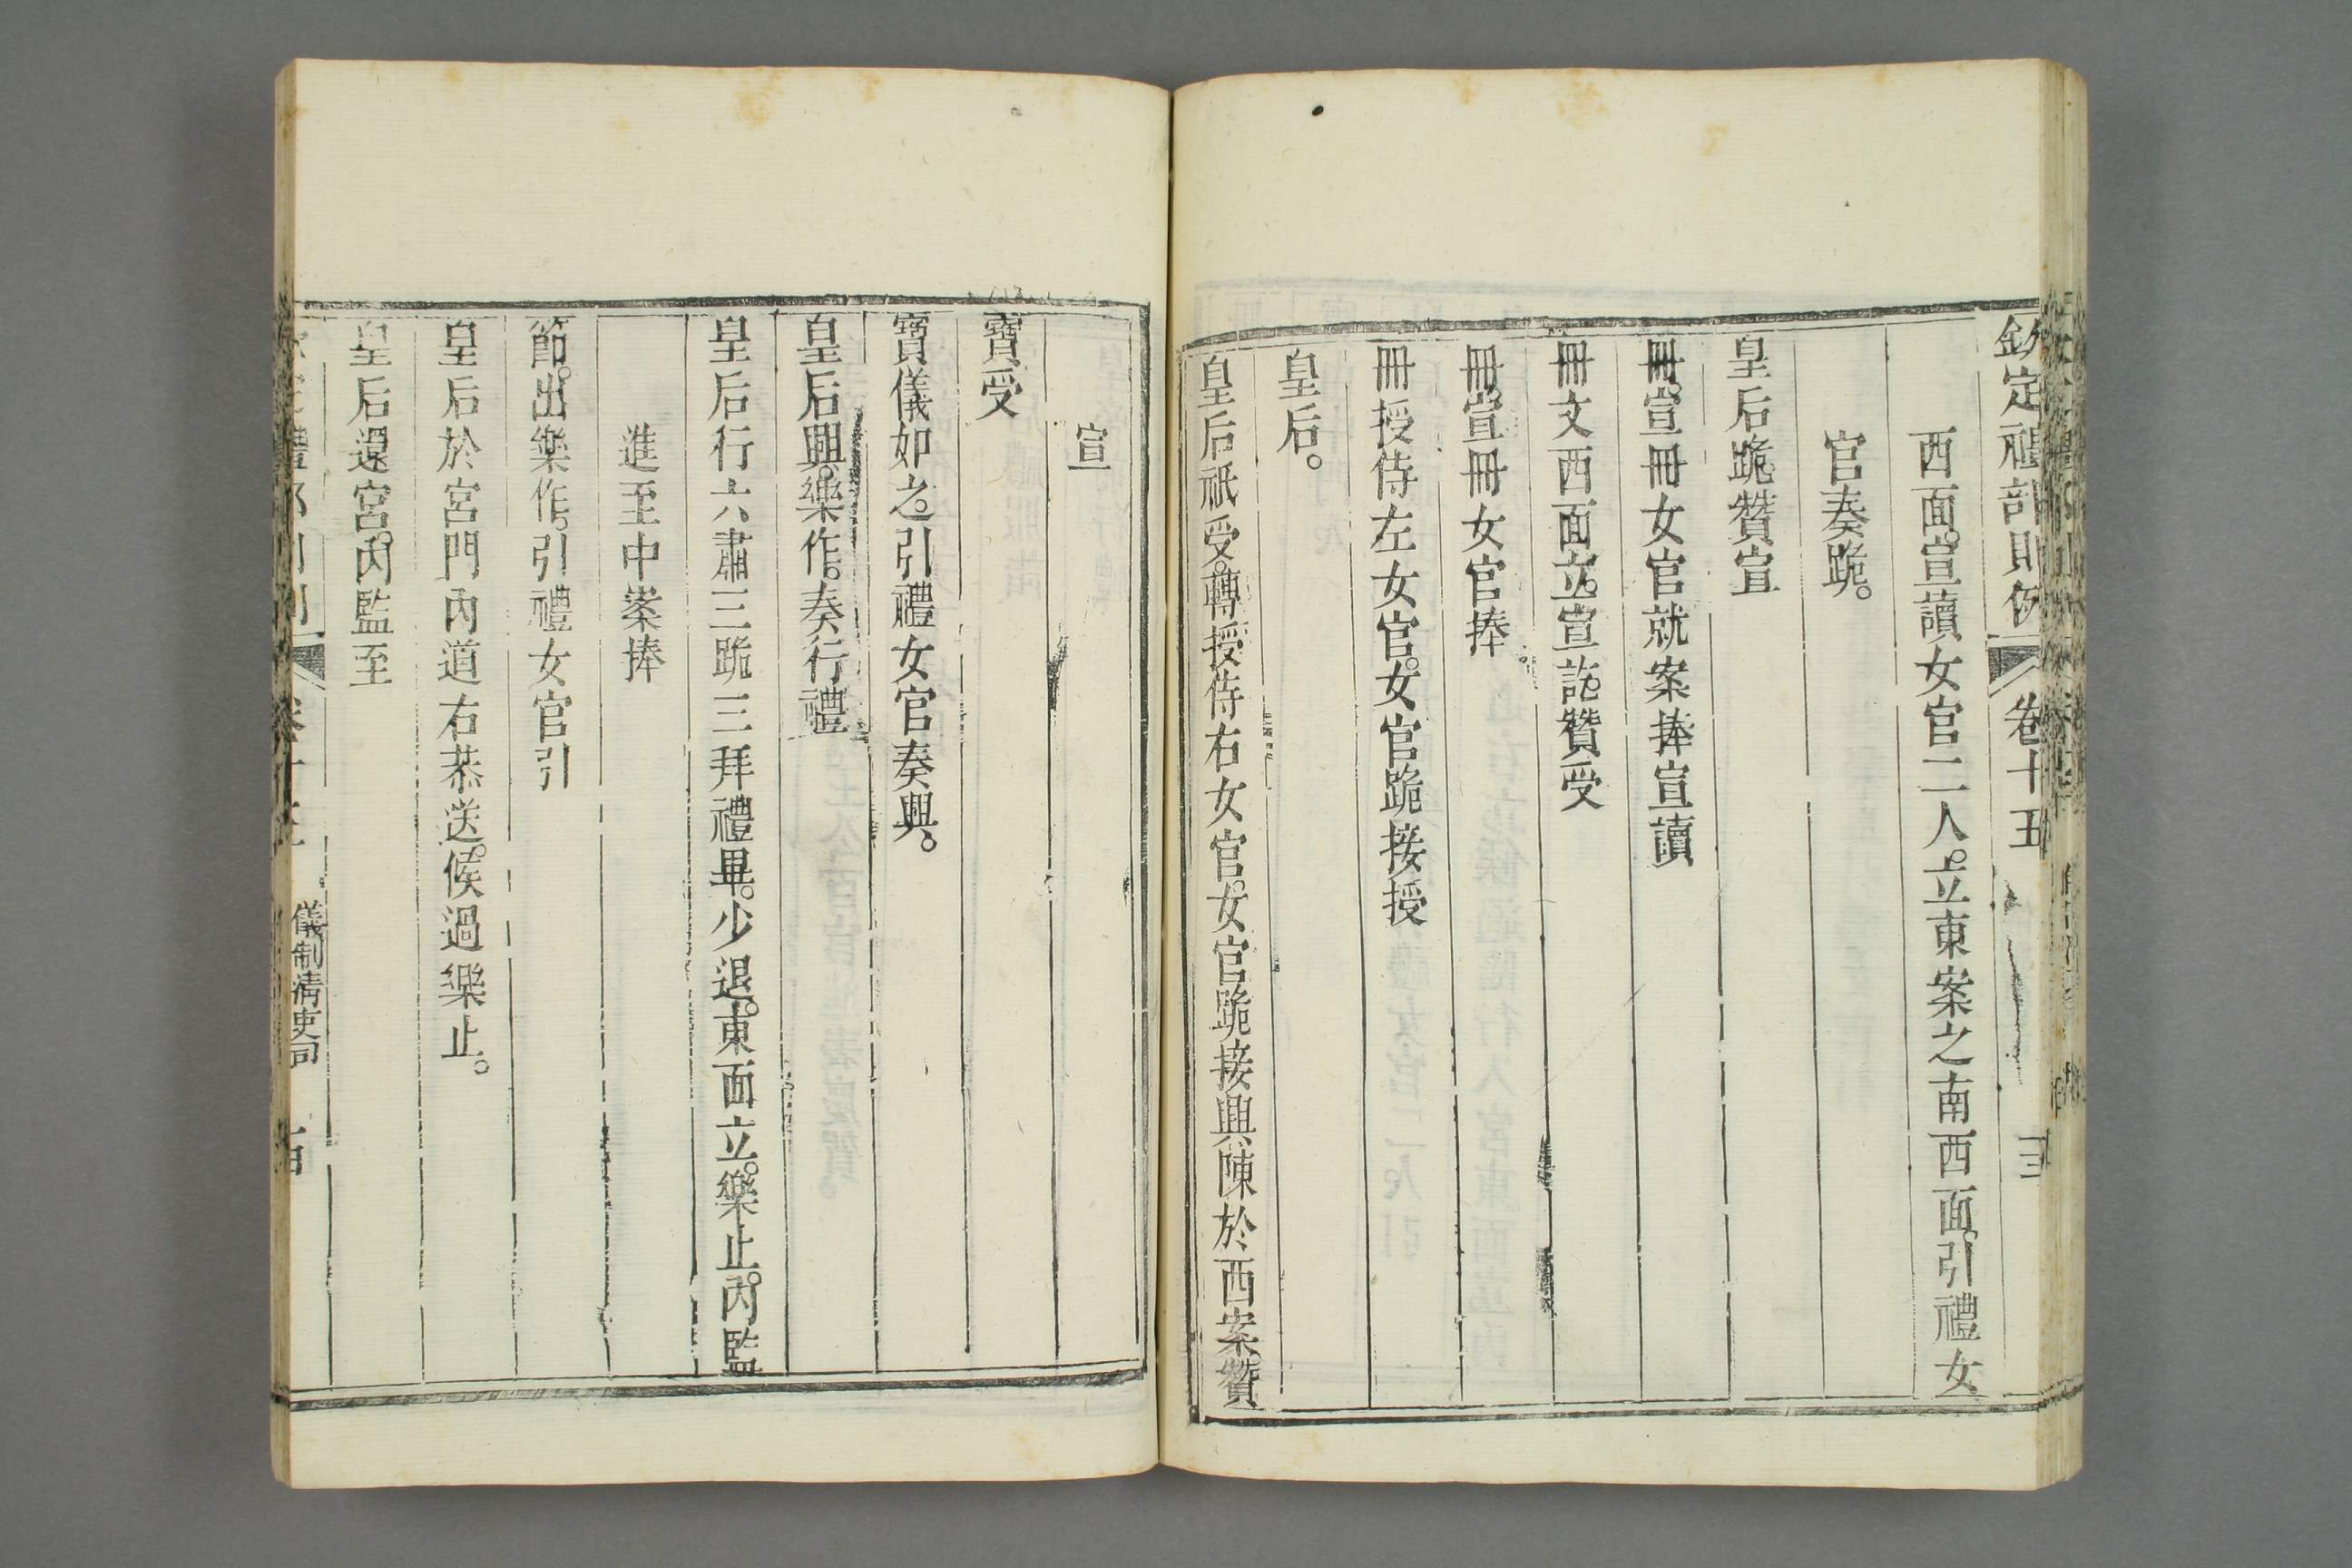 欽定禮部則例 卷十五
西面。宣讀女官二人。立東案之南西面。引禮女
官奏跪。
皇后跪贊宣
冊。宣冊女官就案捧宣讀
冊文西面立。宣訖。贊受
冊。宣冊女官捧
冊授侍左女官。女官跪接授
皇后。
皇后祇受。轉授侍右女官。女官跪接興陳於西案。贊
宣
寶受
寶儀如之。引禮女官奏興。
皇后興。樂作。奏行禮
皇后行六肅三跪三拜禮畢。少退。東面立。樂止。內監
進至中案捧
節。出樂作。引禮女官引
皇后於宮門內道右恭送。候過樂止。
皇后還宮。內監至
儀制清吏司